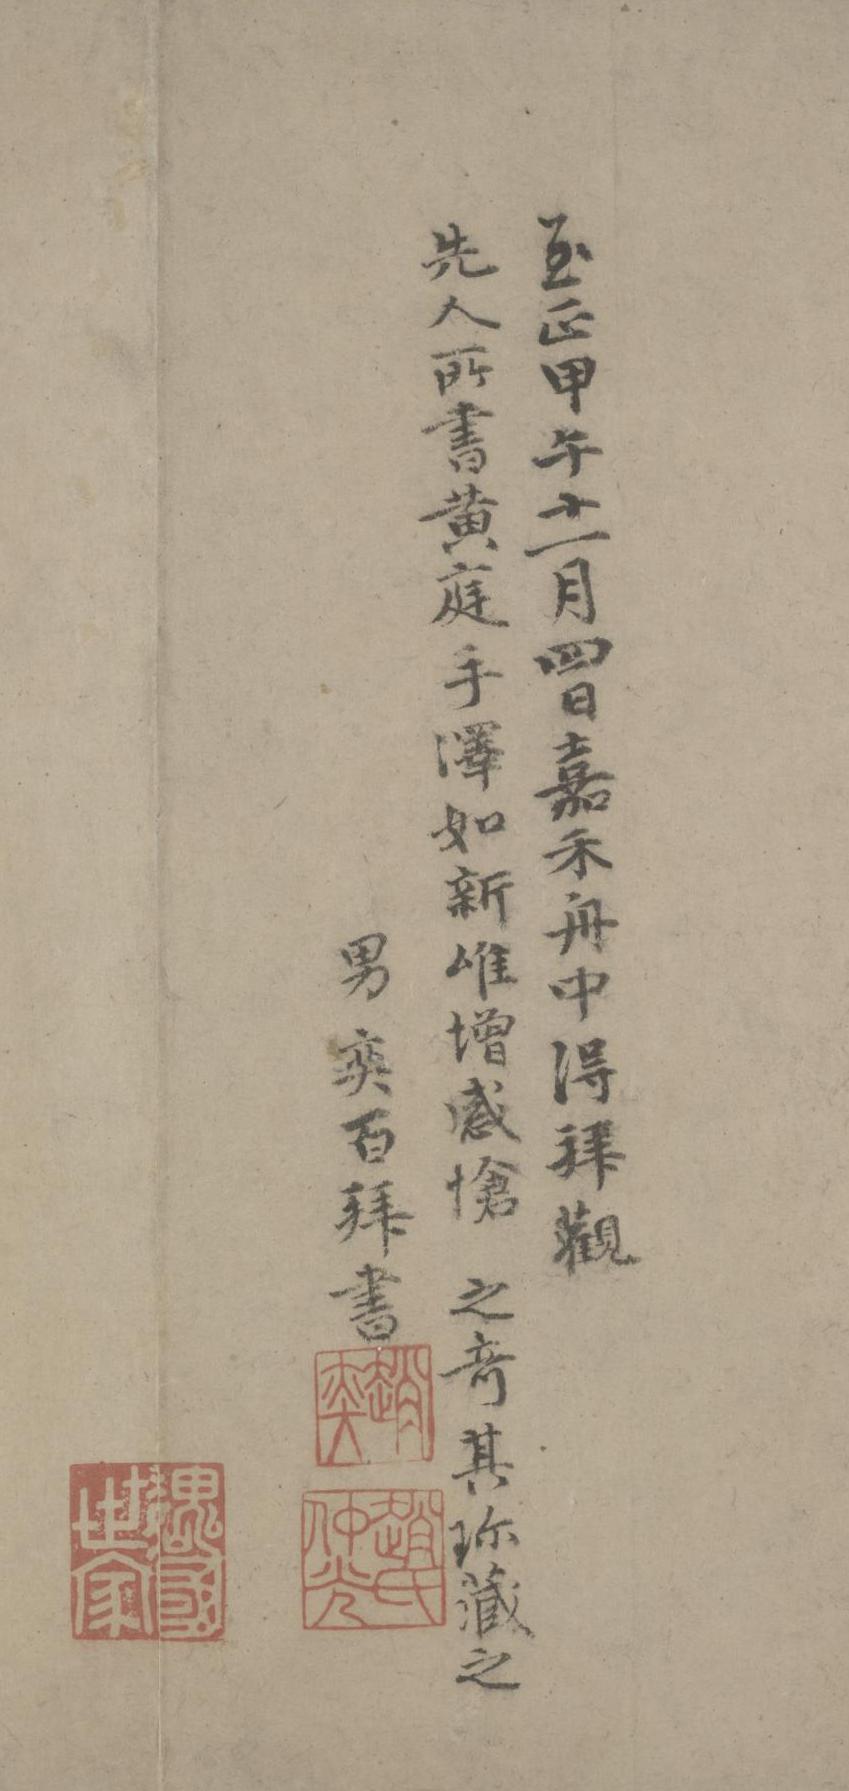 至正甲午十一月四日嘉禾舟中得拜觀
先人所書黄庭手澤如新唯增感愴 之奇其珎藏之
男 奕百拜書
趙奕
趙氏仲光
魏國世家